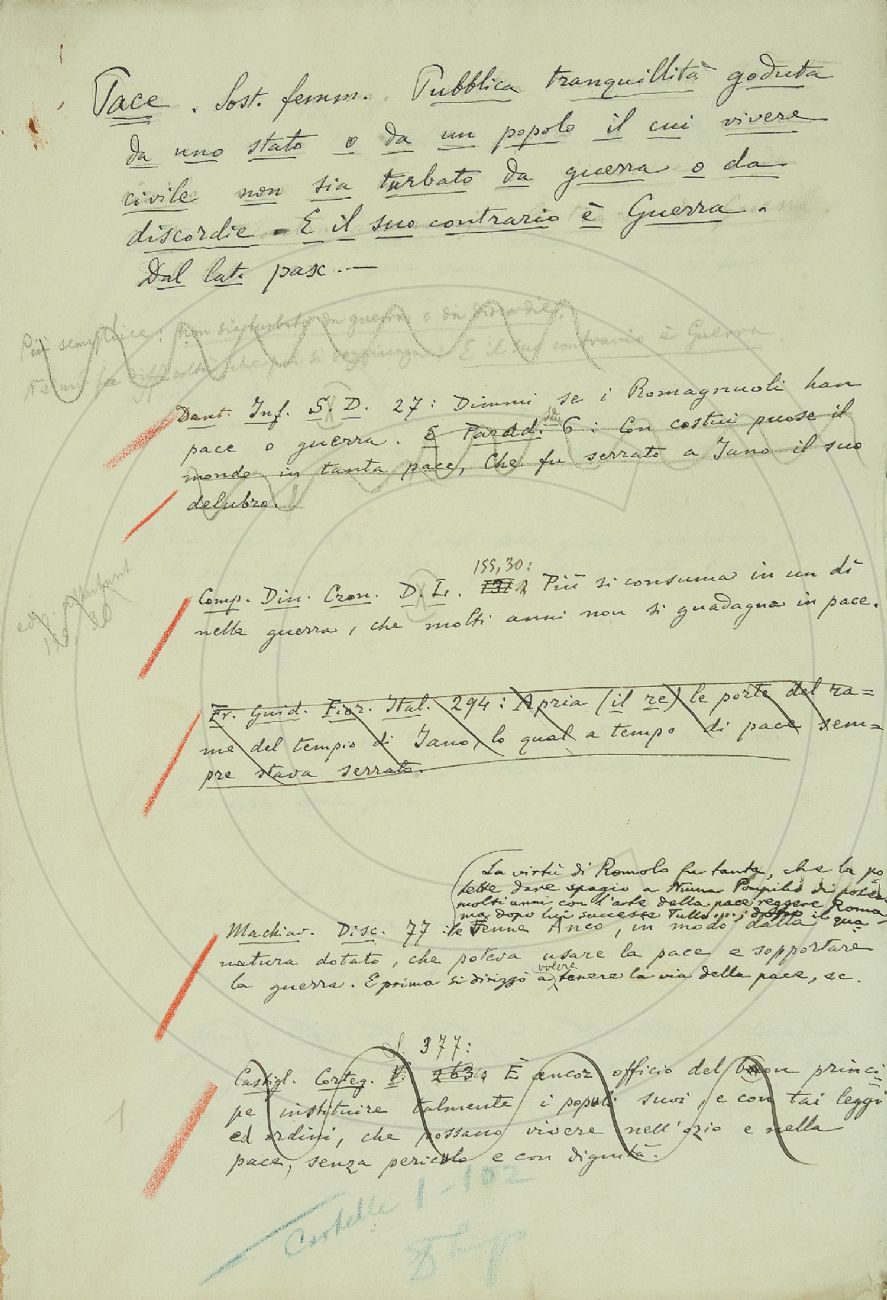 Pace. Sost. femm. Pubblica tranquillità goduta
da uno stato o da un popolo il cui vivere
civile non sia turbato da guerra o da
discordie. E il suo contrario è Guerra.
Dal lat. pax. —
Più semplice: non sia turbato da guerra o da discordie.
E il suo contrario è Guerra
Dant. Inf. S. D. 27: Dimmi se i Romagnuoli han
pace o guerra. E Parad. 6: Con costui puose il
mondo in tanta pace, Che fu serrato a Jano il suo
delubro.
155, 30:
Comp. Din. Cron. D. L. Più si consuma in un dì
nella guerra, che molti anni non si guadagna in pace.
Fr. Guid. Fior. Ital. 294: Apria (il re) le porte del ra=
me del tempio di Jano, lo qual a tempo di pace sem=
pre stava serrato.
La virtù di Romolo fu tanta, che la po
tette dare spazio a Numa Pompilio di poter
molti anni con l'arte della pace reggere Roma
ma dopo lui successe Tullo
Machiav. Disc. 77: Venne Anco, in modo dalla
natura dotato, che poteva usare la pace e sopportare
la guerra. E prima si dirizzò a volere tenere la via della pace, ec.
377:
Castigl. Corteg. 263: È ancor officio del buon princi=
pe instituire talmente i populi suoi, e con tai leggi
ed ordini, che possano vivere nell'ozio e nella
pace, senza pericolo e con dignità.
Cartelle 1-102